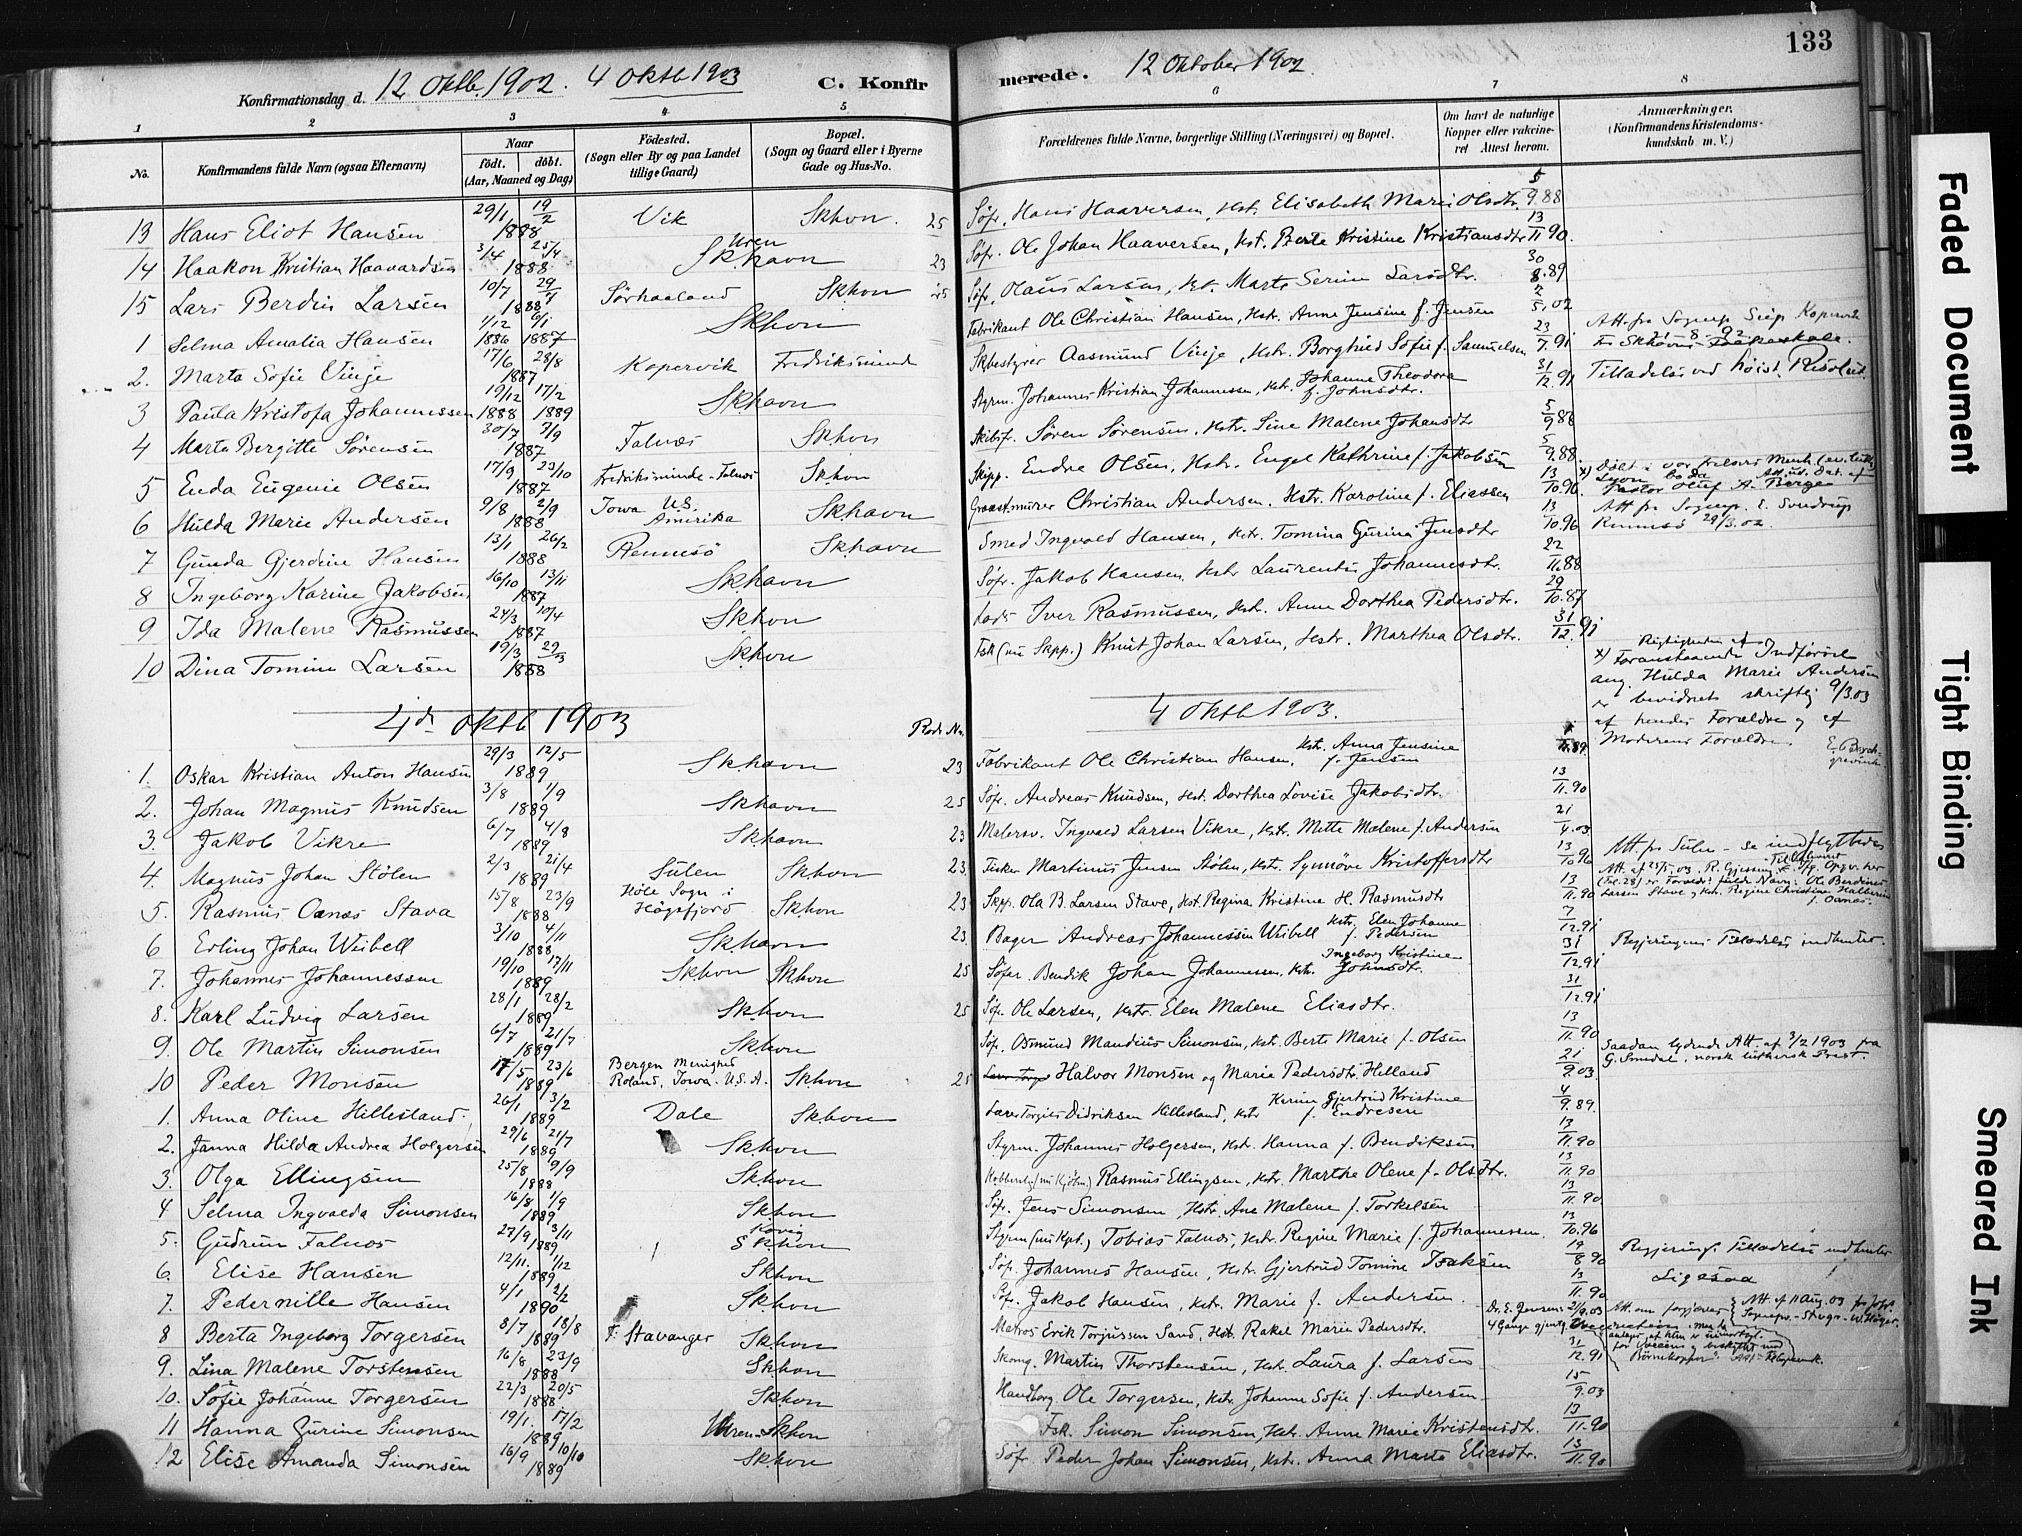 133
Konfirmationsdag d. 12 Oktb. 1902. 4 Oktb 1903 C. Konfir
merede. 12 Oktober 1902.
1 2 3 4 5 6 7 8
No.
Konfirmandens fulde Navn (ogsaa Efternavn)
Naar
født. døbt.
(Aar, Maaned og Dag)
Fødested.
(Sogn eller By og paa Landet
tillige Gaard)
Bopæl.
(Sogn og Gaard eller i Byerne
Gade og Hus-No.
Forældrenes fulde Navne, borgerlige Stilling (Næringsvei) og Bopæl.
Om havt de naturlige
Kopper eller vakcine-
ret Attest herom.
Anmærkninger.
(Konfirmandens Kristendoms-
kundskab m. V.)
13 Hans Eliot Hansen 29/1 19/2 1888 Vik Skhvn. 25 Søfr. Hans Haaversen, Hstr. Elisabeth Marie Olsdtr. 5/9.88
14 Haakon Kristian Haavardsen 3/4 25/4 1888 Uren Sk.havn 23 Søfr. Ole Johan Haaversen, Hst. Berte Kristine Kristiansdtr 13/11 90.
15 Lars Berdin Larsen 10/7 29/7 1888 Sørhaaland Skhvn 25 Søfr. Olaus Larsen, Hst. Marte Serine Larsdtr. 30/8.89
1 Selma Amalia Hansen 1/12 1886 6/1 1887 Skhvn Fabrikant Ole Christian Hansen, Hstr. Anne Jensine f. Jensen 2/5.02
2. Marta Sofie Vinje 17/6 28/8 1887 Kopervik Fredriksminde Skbestyrer Aasmund Vinje, Hstr. Borghild Sofie f. Samuelsen 23/7.91
3 Paula Kristofa Johannessen 19/12 1888 17/2 1889 Skhavn Styrm. Johannes Kristian Johannessen, Hstr. Johanne Theodora f. Johnsdtr. 31/12.91 Tilladelse ved høist. Resolut.
4 Marta Bergitte Sørensen 30/7 7/9 1887 Falnæs Skhvn Skibsfr. Søren Sørensen, Hstr. Sine Malene Johansdtr 5/9 88
5 Enda Eugenie Olsen 17/9 23/10 1887 Fredriksminde - Falnæs Skhvn Skipp. Endre Olsen, Hstr. Engel Kathrine f. Jakobsen 5/9.88
6 Hulda Marie Andersen 9/8 2/9 1888 Iowa U.S. Amerika Skhavn Graastmurer Christian Andersen. Hstr. Karoline f. Eliassen 13/10.96
7 Gunda Gjerdine Hansen 13/1 26/2 1888 Rennesø Skhavn Smed Ingvald Hansen, Hstr. Tomina Gurina Jensdtr 13/10.96 Att fra Sognepr. E. Svendrup Rennesø 29/3.02.
8 Ingeborg Karine Jakobsen 16/10 13/11 1887 Skhavn Søfr. Jakob Hansen, Hstr Laurentse Johannesdtr. 22/11.88
9 Ida Malene Rasmussen 24/3 10/4 1887 Skhvn Lods Iver Rasmussen, Hstr. Anne Dorthea Pedersdtr. 29/10.87
10 Dina Tomine Larsen 19/3 29/3 1888 Skhvn Fsk (nu Skpp.) Knut Johan Larsen, Hstr. Marthea Olsdtr. 31/12.91
x) Rigtigheden af
Foranstaaende Indførsel
ang. Hulda Marie Andersen
er bevidnet skriftlig 9/3.03
af hendes Forældre og af
Moderens Forældre.
4de Oktb 1903
Rode No.
4 Oktb 1903.
1. Oskar Kristian Anton Hansen 29/3 12/5 1889 Skhavn 23 Fabrikant Ole Christian Hansen, Hstr. Anna Jensine f. Jensen
2. Johan Magnus Knudsen 3/8 1/9 1889 Skhavn 25 Søfr. Andreas Knudsen, Hst. Dorthea Lovise Jakobsdtr. 13/11.90
3. Jakob Vikre 6/7 4/8 1889 Skhavn 23 Malersv. Ingvald Larsen Vikre, Hstr. Mette Malene f. Andersen 21/4.03
4. Magnus Johan Stölen 2/3 21/4 1889 Sulen Skhvn 23. Fisker Martinus Jensen Stölen, Hstr. Synnöve Kristoffersdtr 13/10 96 Att. fra Sulen - se indflyttede
5. Rasmus Oanes Stava 15/8 23/9 1888 Höle Sogn i Högsfjord Skhvn 23 Skpp. Ola B. Larsen Stave, Hst. Regina Kristine H. Rasmusdtr 13/11.90
6 Erling Johan Weibell 3/10 4/11 1888 Skhavn 23. Bager Andreas Johannessen Weibell Hstr. Elen Johanne f. Pedersen 7/12.91 Regjeringens Tilladelse indhentet.
7. Johannes Johannessen 19/10 17/11 1889 Skhvn Skhvn 25 Søfar. Bendik Johan Johannessen, Hstr. Ingeborg Kristine Johnsdtr. 31/12.91
8. Karl Ludvig Larsen 28/1 28/2 1889 Skhvn 25 Søfr. Ole Larsen, Hstr. Elen Malene Eliasdtr. 31/12.91
9. Ole Martin Simonsen 6/7 21/7 1889 Skhvn Søfr. Osmund Maudius Simonsen, Hst. Berte Marie f. Olsen 13/11.90
10 Peder Monsen 17/5 23/6 1889 Bergen Menighed Roland, Iowa. U.S.A. Skhvn 25 Halvor Monsen og Marie Pedersdtr. Helland 21/9.03 Saadan lydende Att. af 3/2 1903 fra G. Smedal, norsk luthersk Prest.
1. Anna Oline Hillesland 26/1 3/2 1889 Dale Skhvn Laves Torgils Didriksen Hillesland, Hstr Karine Gjertrud Kristine f. Endresen 4/9.89.
2. Janna Hilda Andrea Holgersen 29/6 21/7 1889 Skhvn Styrm. Johannes Holgersen, Hstr. Hanna f. Bendiksen 13/11.90
3. Olga Ellingsen 25/8 9/9 1888 Skhvn Rasmus Ellingsen, Hstr. Marthe Olene f. Olsdtr. 13/11.90
4 Selma Ingvalda Simonsen 16/8 1/9 1889 Skhvn Søfr. Jens Simonsen Hstr. Ane Malene f. Torkelsen 13/11.90
5. Gudrun Falnæs 27/9 3/11 1889 Skhvn Styrm (nu Kpt.) Tobias Falnæs, Hstr Regine Marie f. Johannessen. 13/10.96
6. Elise Hansen 12/11. 1/12 1889 Skhvn Søf. Johannes Hansen, Hstr. Gjertrud Tomine Isaksen 19/8 90 Regjering. Tilladelse indhentet
7. Pedernille Hansen 4/1 2/2 1890 Skhvn Søfr. Jakob Hansen, Hstr. Marie f. Andersen 13/11.90 Ligesaa
8 Berta Ingeborg Torgersen 8/7 18/8 1889 F. Stavanger Skhvn Matros Erik Torjussen Sand, Hst. Rakel Marie Pedersdtr. Dr. E. Jensens 2/9.03
9. Lina Malene Torstensen 16/8 23/9 1888 Skhvn Skomg. Martin Thorstensen, Hstr. Laura f. Larsen 31/12.91
10. Sofie Johanne Torgersen 22/3 20/5 1888 Skhvn Handlbg. Ole Torgersen, Hstr Johanne Sofie f. Andersen 15/9.03
11 Hanna Gurine Simonsen 19/1. 17/2 1889 Uren - Skhvn Fsk. Simon Simonsen, Hstr. Anne Marie Kristensdtr. 13/11.90
12 Elise Amanda Simonsen 16/9 10/10 1889 Skhvn Søfr Peder Johan Simonsen, Hstr. Anna Marta Eliasdtr. 13/11.90
Faded Document
Tight Binding
Smeared Ink